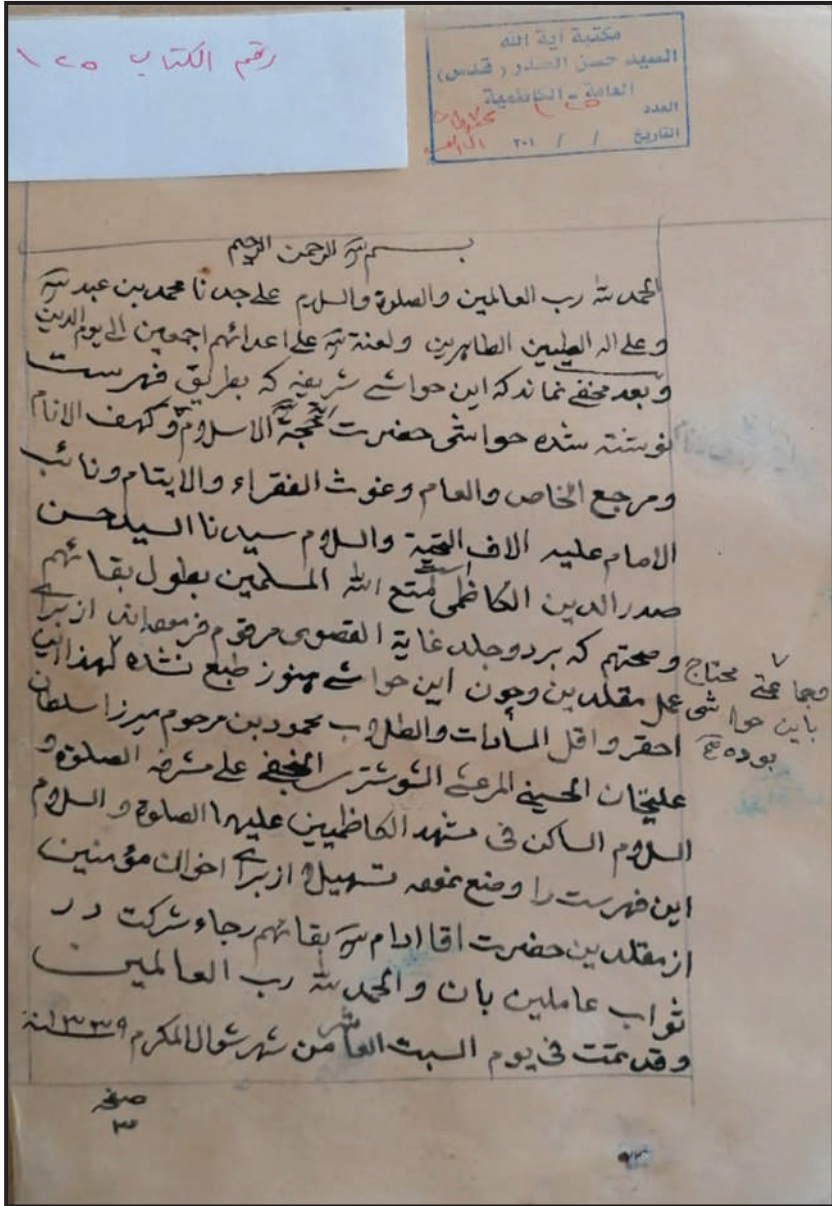 رقم الكتاب ١٢٥
مكتبة آية الله
السيد حسن الصدر (قدس)
العامة - الكاظمية
العدد ١٢٥
التاريخ / / ٢٠١
بسم الله الرحمن الرحيم
الحمد لله رب العالمين والصلوة والسلام على جدنا محمد بن عبد الله
وعلى اله الطيبين الطاهرين ولعنة الله على اعدائهم اجمعين الى يوم الدين
وبعد مخفى نماند كه اين حواشى شريفه كه بطريق فهرست
نوشته شده حواشى حضرت حجة الاسلام وكهف الانام
ومرجع الخاص والعام وغوث الفقراء والايتام ونائب
الامام عليه الاف التحية والسلام سيدنا السيد حسن
صدر الدين الكاظمى است متع الله المسلمين بطول بقائهم
وصحتهم كه بر دو جلد غاية القصوى مرقوم فرموده‌اند از براى
عمل مقلدين وچون اين حواشى هنوز طبع نشده لهذا اين
وجماعتى محتاج
باين حواشى
بوده
احقر واقل السادات والطلاب محمود بن مرحوم ميرزا سلطان
عليخان الحسينى المرعشى الشوشترى النجفى على مشرفه الصلوة و
السلام الساكن فى مشهد الكاظميين عليهما الصلوة والسلام
اين فهرست را وضع نموده تسهيلا از براى اخوان مؤمنين
از مقلدين حضرت اقا ادام الله بقائهم رجاء شركت در
ثواب عاملين بان والحمد لله رب العالمين
وقد تمت فى يوم السبت العاشر من شهر شوال المكرم ١٣٣٩ سنة
صفحه
٣